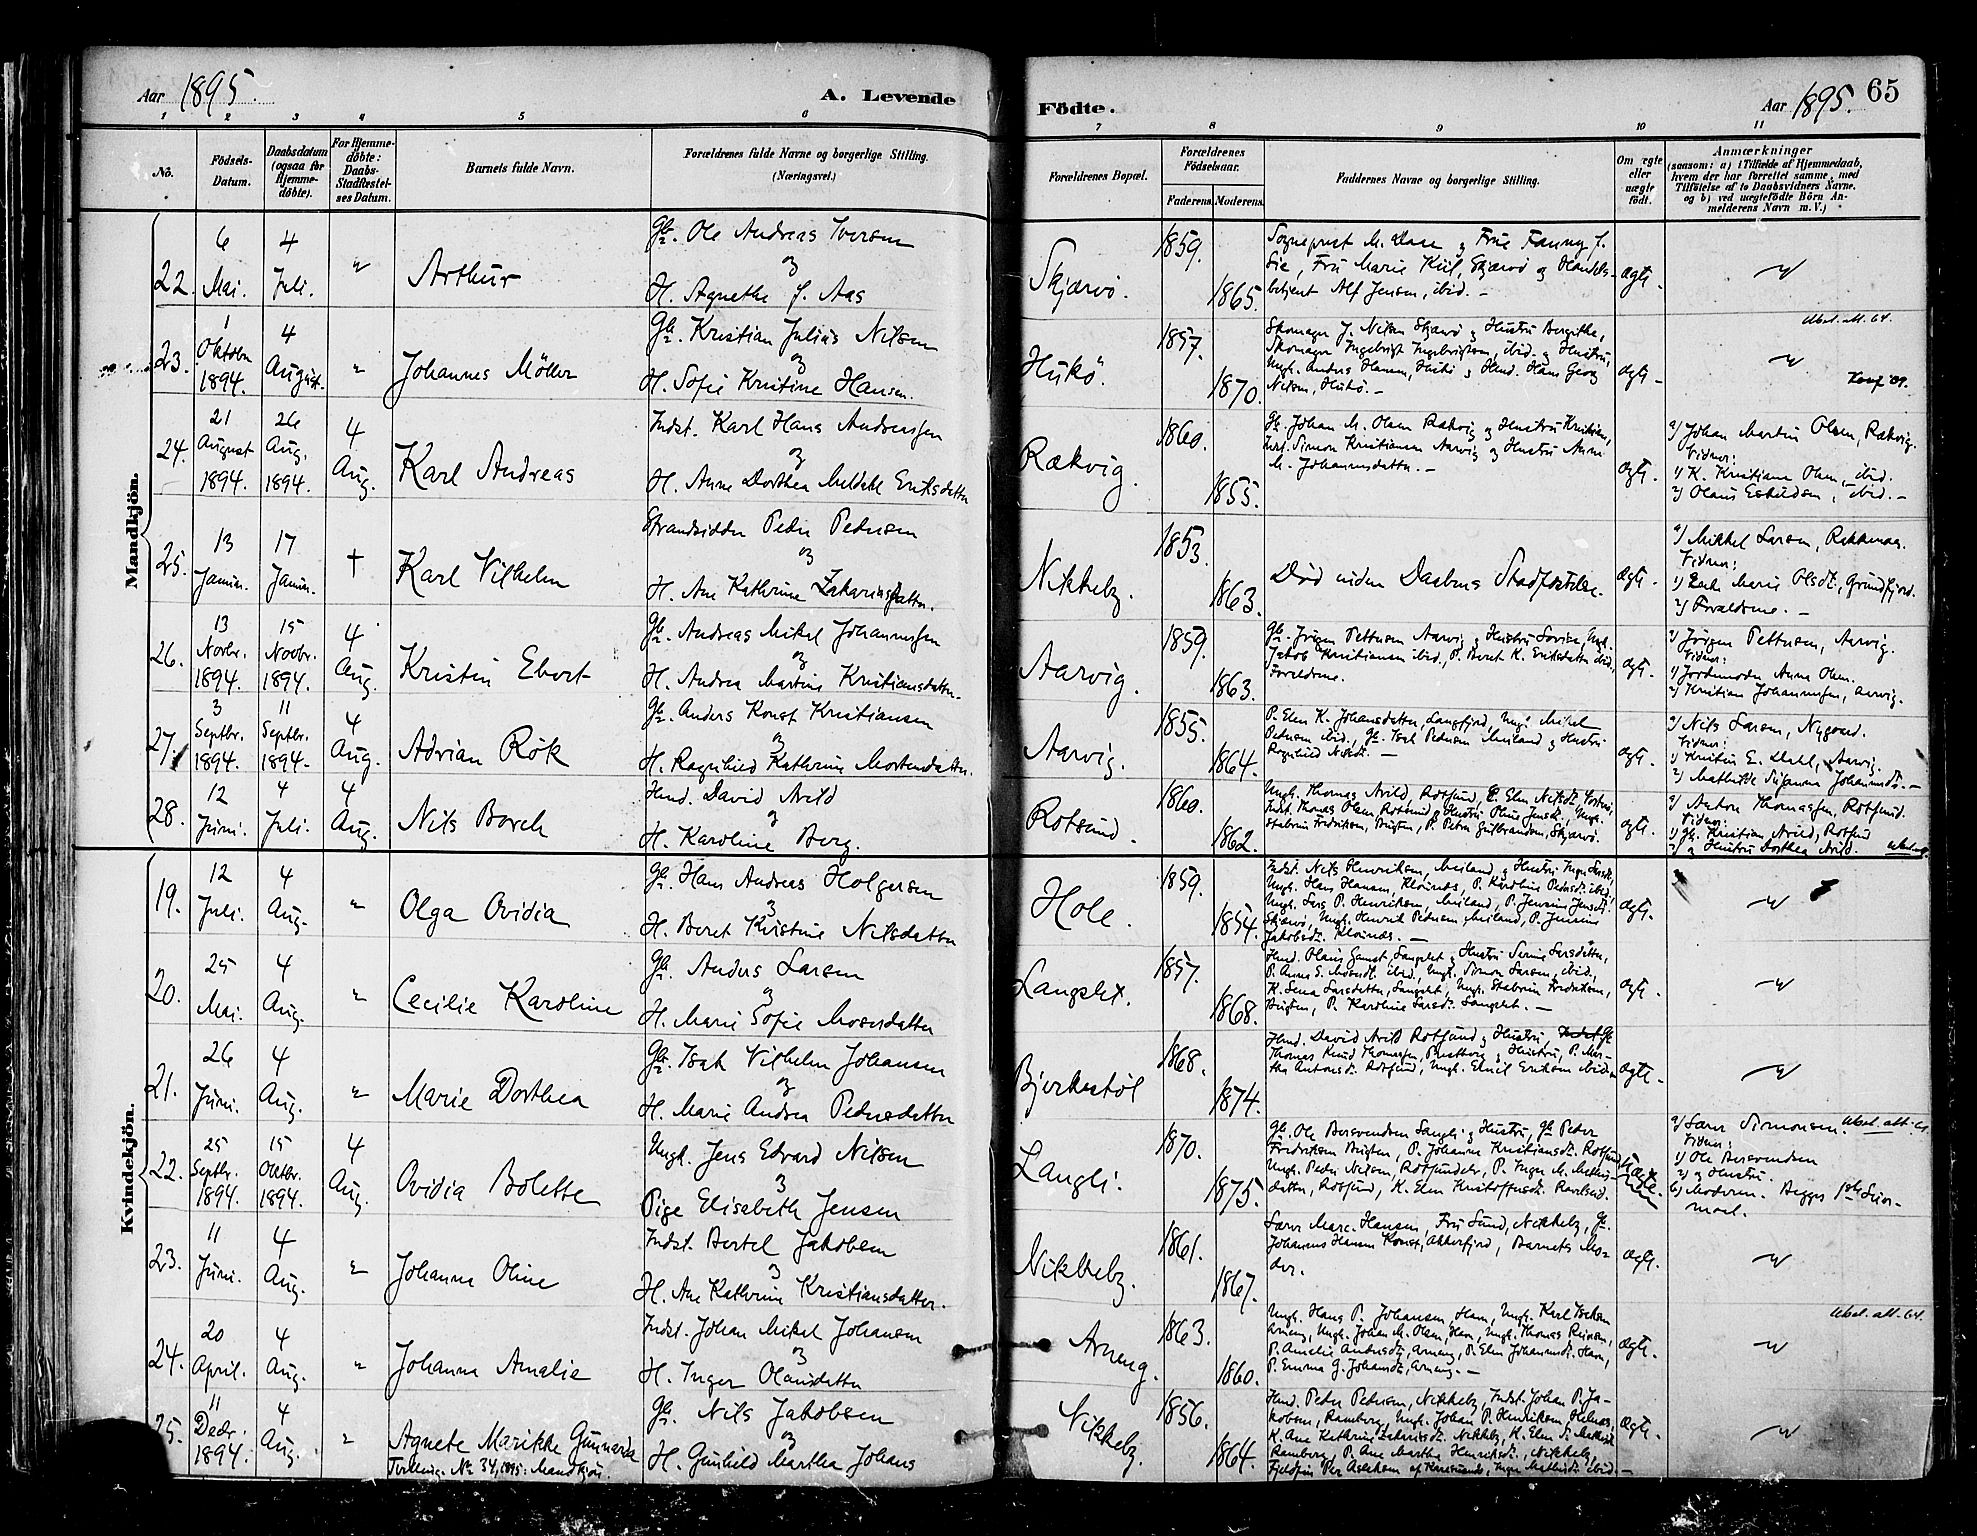 Aar 1895. A. Levende
1 2 3 4 5 6
No. Födsels-Datum. Daabsdatum (ogsaa for Hjemme-döbte). For Hjemme-döbte: Daabs-Stadfæstel-ses Datum. Barnets fulde Navn. Forældrenes fulde Navne og borgerlige Stilling. (Næringsvei.)
Födte. Aar 1895. 65
7 8 9 10 11
Forældrenes Bopæl. Forældrenes Födselsaar. Faderens. Moderens. Faddernes Navne og borgerlige Stilling. Om ægte eller uægte födt. Anmærkninger
(saasom: a) i Tilfælde af Hjemmedaab,
hvem der har forrettet samme, med
Tilföielse af to Daabsvidners Navne.
og b) ved uægtefödte Börn An-
melderens Navn m. V.)
Mandkjön.
22. 6 Mai. 4 Juli. " Arthur
Gbr. Ole Andreas Iversen
og
H. Agnethe f. Aas
Skjærvö. 1859. 1865.
Sogneprest M. Daae og Frue Fanny f.
Sie, Fru Marie Kiil, Skjærvö og Handels-
betjent Alf Jensen, ibid. -
ægte.
23. 1 Oktober 1894. 4 August. " Johannes Möller
Gbr. Kristian Julius Nilsen
og
H. Sofie Kristine Hansen.
Hukö. 1857. 1870.
Skomager J. Nilsen Skjærvö og Hustru Bergithe,
Skomager Ingebrigt Ingebrigtsen, ibid. og Hustru,
Ungk. Anders Hansen, Hukö og Hans Georg
Nilsen, Hukö. -
ægte.
24. 21 August 1894. 26 Aug. 1894. 4 Aug. Karl Andreas
Indst. Karl Hans Andreassen
og
H. Anne Dorthea Meldahl Eriksdatter
Rækvig. 1860. 1855.
Gbr. Johan M. Olsen Rækvig og Hustru Kristine,
Indst. Simon Kristiansen Aarvig og Hustru Anne
M. Johannesdatter. -
ægte.
a) Johan Martin Olsen, Rækvig.
Vidner:
1) K. Kristiane Olsen, ibid.
2) Olaus Eskildsen, ibid. -
25. 13 Januar. 17 Januar. † Karl Vilhelm
Strandsidder Peder Pedersen
og
H. Ane Kathrine Zakariasdatter.
Nikkelby. 1853. 1863.
Död uden Daabens Stadfæstelse.
ægte.
a) Mikkel Larsen,
Vidner:
1) Marie Olsdt., Grundfjord.
2) Forældrene. -
26. 13 Novbr. 1894. 15 Novbr. 1894. 4 Aug. Kristin Ebert
Gbr. Andreas Mikal Johannessen
og
H. Andrea Martine Kristiansdatter.
Aarvig. 1859. 1863.
Gbr. Jörgen Pettersen Aarvig og Hustru Lovise, Ungk.
Jakob Kristiansen ibid., P. Beret K. Eriksdatter ibid,
Forældrene.
ægte.
a) Jörgen Pettersen, Aarvig.
Vidner:
1) Jordemoder Anne Olsen.
2) Kristian Johannessen, Aarvig.
27. 3 Septbr. 1894. 11 Septbr. 1894. 4 Aug. Adrian Rök
Gbr. Anders Konst Kristiansen
og
H. Ragnhild Kathrine Mortensdatter.
Aarvig. 1855. 1864.
P. Elen K. Johansdatter, Langfjord, Ungk. Mikal
Pedersen ibid., Gbr. Isak Pedersen Meiland og Hustru
Ragnhild Nilsdt. -
ægte.
a) Nils Larsen, Nygaard.
Vidner:
1) Kristin E. Dahl, Aarvig.
2) Mathilde Susanna Johannesdt. -
28. 12 Juni. 4 Juli. 4 Aug. Nils Borch
Hmd. David Arild
og
H. Karoline Berg.
Rotsund. 1860. 1862.
Ungk. Thomas Arild, Rotsund, P. Elen Nilsdt.
Indst. Thomas Olsen Rotsund og Hustru Oline Jensdt., Ungk.
Fredriksen, Bugten, P. Petra Gulbrandsen, Skjærvö.
ægte.
a) Anton Thomassen, Rotsund.
Vidner:
1) Gbr. Kristian Arild, Rotsund
2) og Hustru Dorthea Arild.
Kvindekjön.
19. 12 Juli. 4 Aug. " Olga Ovidia
Gbr. Hans Andreas Holgersen
og
H. Beret Kristine Nilsdatter
Hole. 1859. 1854.
Indst. Nils Henriksen, Meiland, og Hustru Inger Larsdt.,
Ungk. Hans Hansen, P. Karoline Pedersdt. ibid,
Ungk. Lars P. Henriksen, Meiland, P. Jensine Jensdt.
Skjærvö, Ungk. Henrik Pedersen Meiland, P. Jensine
Jakobsdt.
ægte.
20. 25 Mai. 4 Aug. " Cecilie Karoline
Gbr. Anders Larsen
og
H. Marie Sofie Mosesdatter
Langslet. 1857. 1868.
Hmd. Olaus Langslet og Hustru Larsdatter,
P. Anne S. ibid, Ungk. Simon Larsen, ibid.,
K. Lena Larsdatter, Langslet, Ungk. Fredriksen,
Bugten, P. Karoline Larsdt. Langslet. -
ægte.
21. 26 Juni. 4 Aug. " Marie Dorthea
Gbr. Isak Vilhelm Johansen
og
H. Marie Andrea Pedersdatter
Bjerkestöl 1868. 1874.
Hmd. David Arild Rotsund og Hustru,
Thomas Knud Thomassen, og Hustru, P. Mar-
the Antonsdt. Rotsund, Ungk. Emil Eriksen ibid.
ægte.
22. 25 Septbr. 1894. 15 Oktbr. 1894. 4 Aug. Ovidia Bolette
Ungk. Jens Edvard Nilsen
og
Pige Elisabeth Jensen
Langli. 1870. 1875.
Gbr. Ole Bersvendsen Langli og Hustru, Gbr. Peder
Fredriksen Bugten, P. Johanne Kristiansdt. Rotsund,
Ungk. Peder Nilsen, P. Inger M.
datter, Rotsund, K. Elen Kristoffersdt.
Uægte.
a) Lærer Simonsen.
Vidner:
1) Ole Bersvendsen
2) og Hustru.
b) Moderen. Begges 1ste Leier-
maal.
23. 11 Juni. 4 Aug. " Johanna Oline
Indst. Bertel Jakobsen
og
H. Ane Kathrine Kristiansdatter.
Nikkelby. 1861. 1867.
Lærer Marc. Hansen, Fru Lund, Nikkelby, Gbr.
Johannes Hansen Konst, Akkerfjord, Barnets Mo-
der.
ægte.
24. 20 April. 4 Aug. " Johanna Amalie
Indst. Johan Mikal Johansen
og
H. Inger Olausdatter
Arneng. 1863. 1860.
Ungk. Hans P. Johansen, Havn, Ungk. Karl Isaksen
Arneng, Ungk. Johan M. Olsen, Havn, Ungk. Thomas
P. Amalie Andersdt., Arneng, P. Elen Johannesdt. Havn,
P. Emma G. Johansdt., Arneng. -
ægte.
25. 11 Decbr. 1894. 4 Aug. " Agnete Marikke Gunnarda
Tvilling. No. 34, 1895. Mandkjön.
Gbr. Nils Jakobsen
og
H. Gunhild Martha Johans
Nikkelby. 1856. 1864.
Hmd. Peder Pedersen, Nikkelby, Indst. Johan P. Ja-
kobsen, Ramberg, Ungk. Johan P. Henriksen
K. Ane Kathrine Zakariasdt. Nikkelby, K. Elen
Ramberg, P. Ane Marthe Henriksdt., Nikkelby,
Per Aslaksen af Karesuando, Inger ibid. -
ægte.